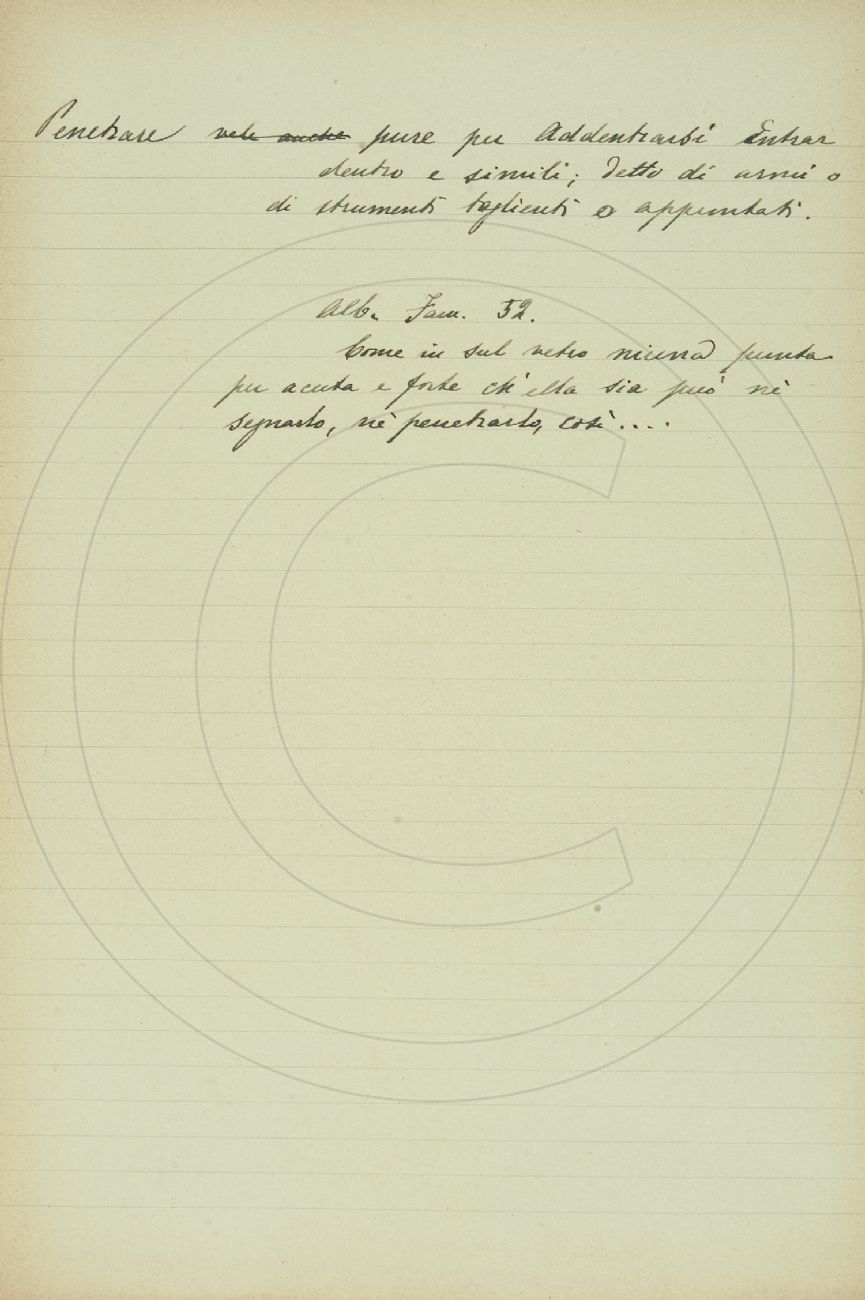 Penetrare vale anche pure per Addentrarsi Entrar
dentro e simili; detto di armi o
di strumenti taglienti o appuntati.
Alb. Fam. 52.
Come in sul vetro niuna punta
per acuta e forte ch'ella sia può nè
segnarlo, nè penetrarlo, così....